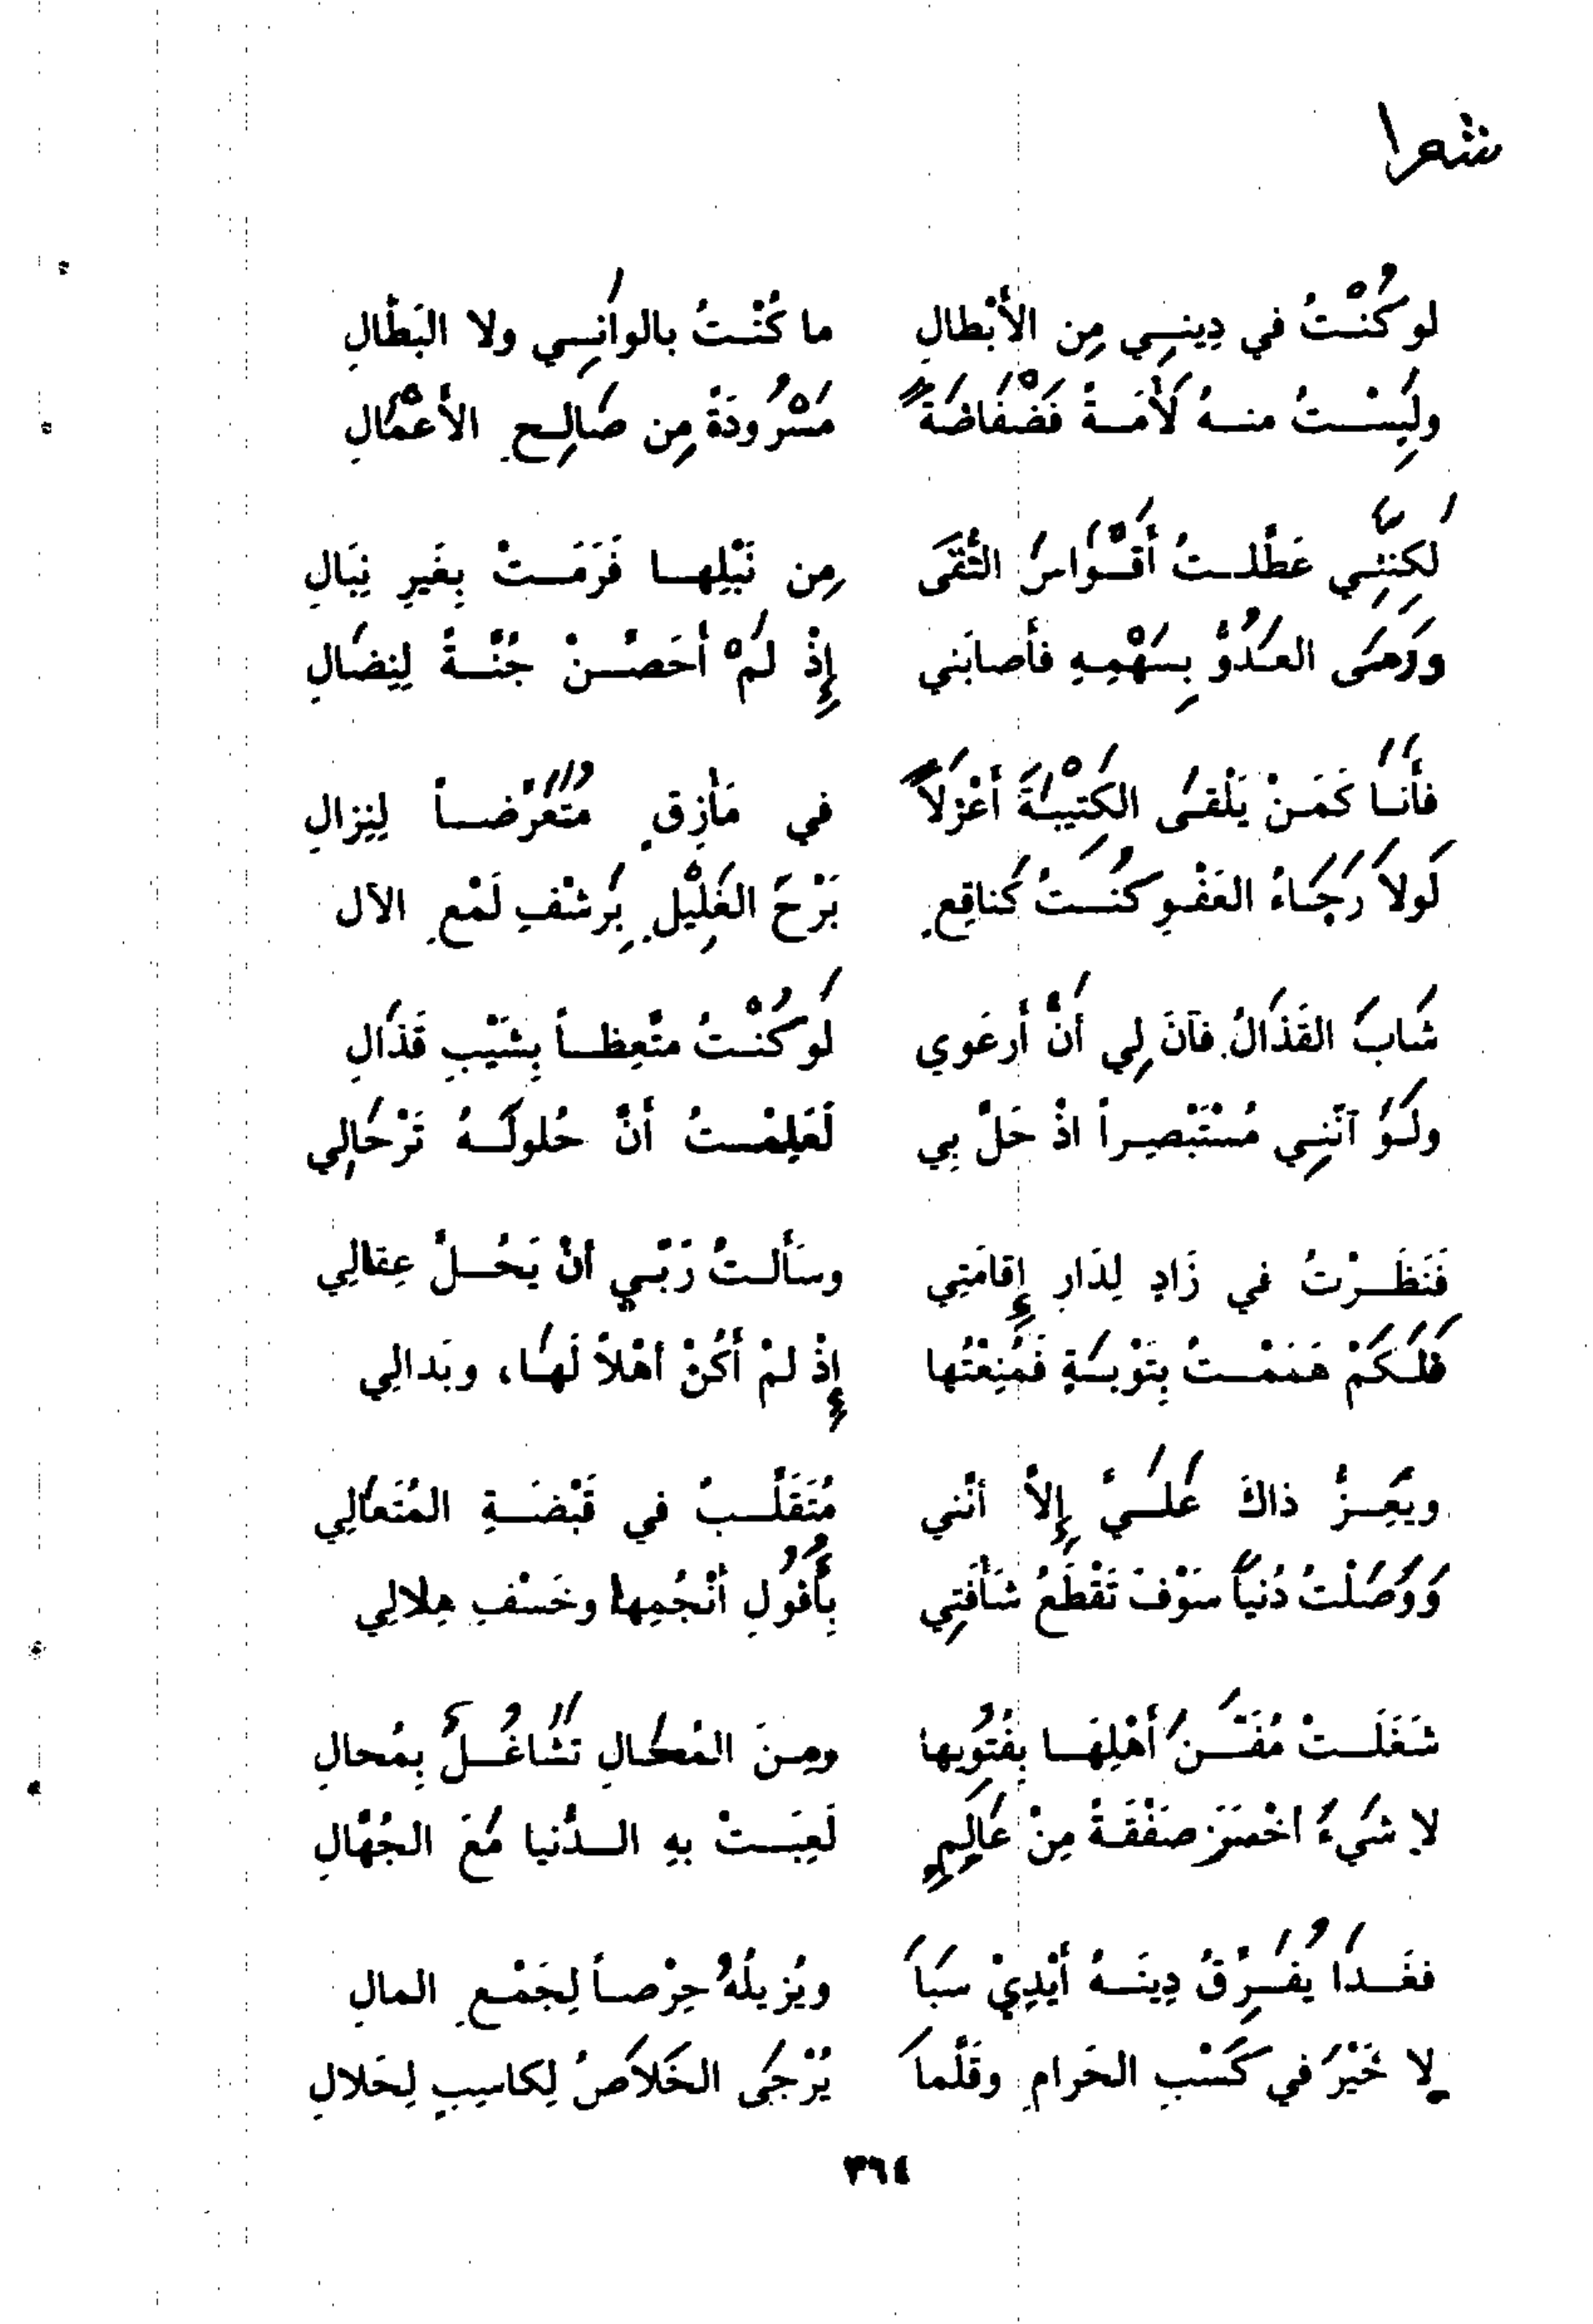 شعرا
لو كُنْتُ في دِينِي مِن الأَبْطالِ ما كُنْتُ بالوانِي ولا البَطَّالِ
ولَبِسْتُ منهُ لَأْمَةً فَضْفَاضَةً مَسْرُودَةً مِن صَالِحِ الأَعْمَالِ
لَكِنَّنِي عَطَّلتُ أَقْوَاسَ التُّقَى مِن نَبْلِها فَرَمَتْ بِغَيرِ نِبَالِ
ورَمَى العَدُوُّ بِسَهْمِهِ فأَصابَني إِذْ لَمْ أُحَصِّنْ جُنَّةً لِنِضَالِ
فأَنَا كَمَنْ يَلْقَى الكَتِيبَةَ أَعْزَلاً في مَأْزِقٍ مُتَعَرِّضاً لِنِزالِ
لَولاَ رَجَاءُ العَفْوِ كُنتُ كَناقِعٍ بَرْحَ الغَلِيْلِ بِرَشْفِ لَمْعِ الآل
شَابَ القَذَالُ فآنَ لِي أَنْ أَرعَوي لَو كُنْتُ متَّعِظاً بِشَيْبِ قَذَالِ
ولَوُ آنَّنِي مُسْتَبْصِراً اذْ حَلَّ بِي لَعَلِمْتُ أَنَّ حُلولَهُ تَرْحَالِي
فَنَظَرْتُ في زَادٍ لِدَارِ إِقامَتِي وسَأَلتُ رَبِّي أنْ يَحُلَّ عِقالِي
فَلَكَمْ هَمَمْتُ بِتَوْبَةٍ فَمُنِعْتُها إِذْ لَمْ أَكُنْ أَهْلاً لَهَا، وبَدالِي
ويَعِزُّ ذاكَ عَلَيَّ إِلاَّ أنَّني مُتَقَلِّبٌ في قَبْضَةِ المُتَعَالِي
وَوَصَلْتُ دُنْياً سَوْفَ تَقْطَعُ شَأْفَتِي بِأُفُولِ أَنْجُمِها وخَسْفِ هِلالِي
شَغَلَتْ مُفَتَّنَ أَهْلِهَا بِفُتُونِها ومِنَ المُحَالِ تَشَاغُلٌ بِمُحالِ
لا شَيْءَ اخْسَرَ صَفْقَةً مِنْ عَالِمٍ لَعِبَتْ بهِ الدُّنيا مَعَ الجُهَّالِ
فغَدَا يُفَرِّقُ دِينَهُ أَيْدِيْ سَبَا ويُزيلُهُ حِرْصاً لِجَمْعِ المالِ
لا خَيْرَ في كَسْبِ الحَرامِ وقَلَّمَا يُرْجَى الخَلاَصُ لِكاسِبٍ لِحَلالِ
٣٦٤